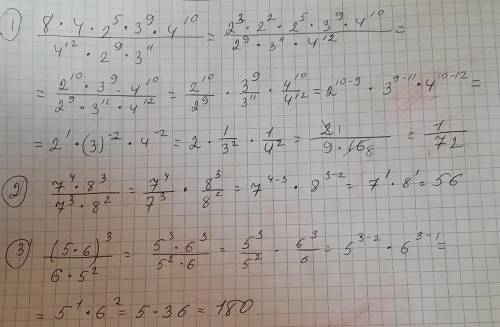 1) (8 · 4 · 2⁵ · 3⁹ · 4¹⁰)/(4¹² · 2⁹ · 3¹¹) = (2³ · 2² · 2⁵ · 3⁹ · 4¹⁰)/(2⁹ · 3¹¹ · 4¹²) =
= (2¹⁰ · 3⁹ · 4¹⁰)/(2⁹ · 3¹¹ · 4¹²) = 2¹⁰/2⁹ · 3⁹/3¹¹ · 4¹⁰/4¹² = 2¹⁰⁻⁹ · 3⁹⁻¹¹ · 4¹⁰⁻¹² =
= 2¹ · (3)⁻² · 4⁻² = 2 · 1/3² · 1/4² = 2 1/(9 · 16 8) = 1/72
2) (7⁴ · 8³)/(7³ · 8²) = 7⁴/7³ · 8³/8² = 7⁴⁻³ · 8³⁻² = 7¹ · 8¹ = 56
3) (5·6)³/(6 · 5²) = (5³ · 6³)/(5² · 6) = 5³/5² · 6³/6 = 5³⁻² · 6³⁻¹ =
= 5¹ · 6² = 5 · 36 = 180